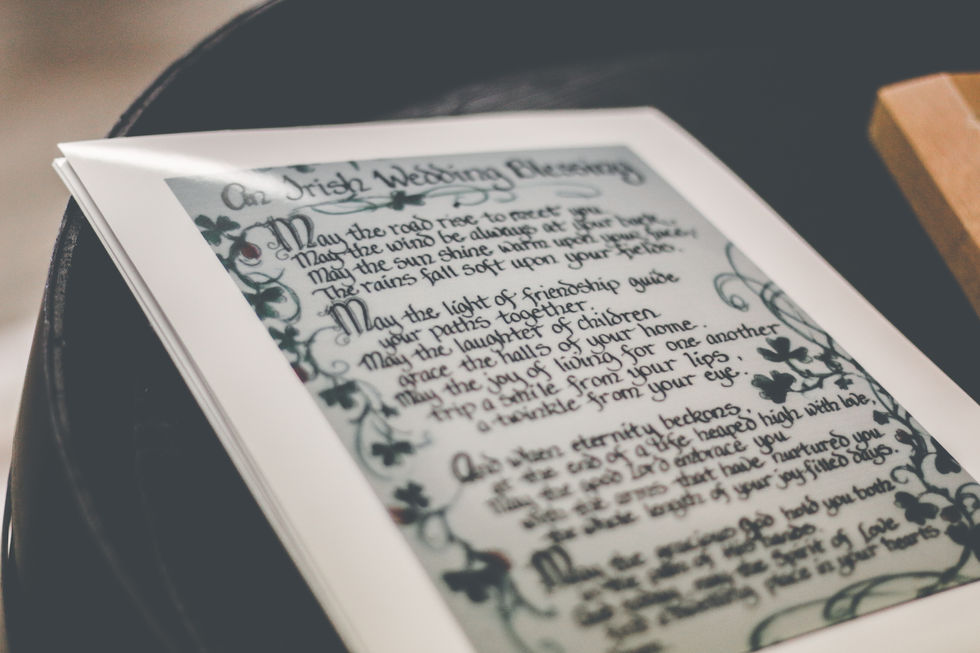 An Irish Wedding Blessing
May the road rise to meet you
May the wind be always at your back.
May the sun shine warm upon your face,
The rains fall soft upon your fields.
May the light of friendship guide
your paths together.
May the laughter of children
grace the halls of your home.
May the joy of living for one another
trip a smile from your lips,
a twinkle from your eye.
And when eternity beckons,
at the end of a life heaped high with love,
May the good Lord embrace you
with the arms that have nurtured you
the whole length of your joy-filled days.
May the gracious God hold you both
in the palm of His hands
And today may the Spirit of Love
find a dwelling place in your hearts